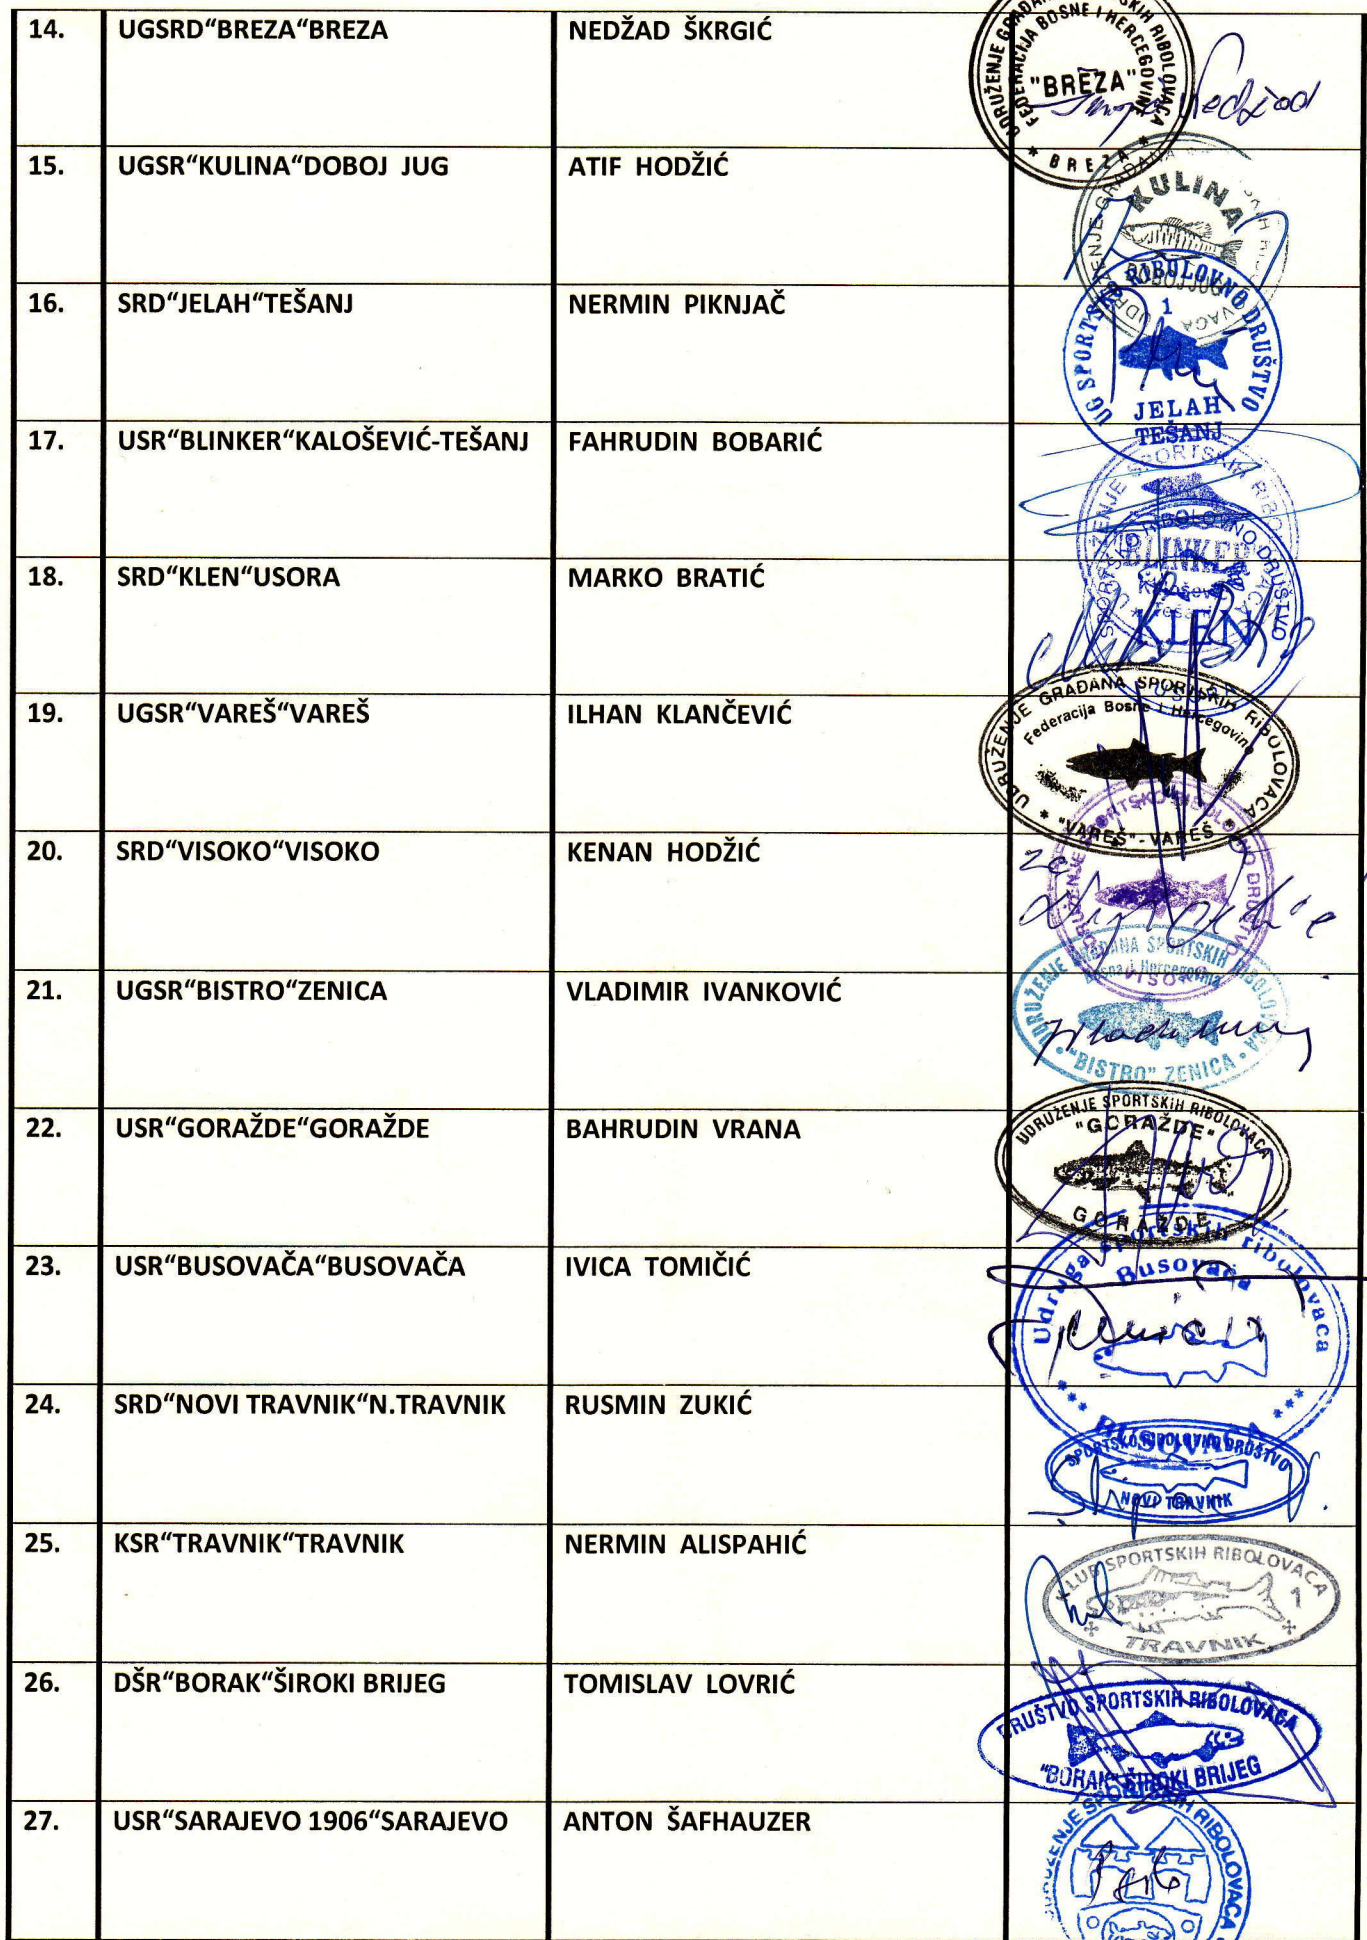 14. UGSRD"BREZA“BREZA NEDŽAD ŠKRGIĆ
UDRUŽENJE GRAĐANA SPORTSKIH RIBOLOVACA
FEDERACIJA BOSNE I HERCEGOVINE
"BREZA"
* BREZA *
Nedžad
15. UGSR“KULINA“DOBOJ JUG ATIF HODŽIĆ
KULINA
DOBOJ JUG
16. SRD“JELAH“TEŠANJ NERMIN PIKNJAČ
UG SPORTSKO RIBOLOVNO DRUŠTVO
1
JELAH
TEŠANJ
17. USR“BLINKER“KALOŠEVIĆ-TEŠANJ FAHRUDIN BOBARIĆ
BLINKER
Kalošević
Tešanj
18. SRD“KLEN“USORA MARKO BRATIĆ
SPORTSKO RIBOLOVNO DRUŠTVO
KLEN
USORA
19. UGSR“VAREŠ“VAREŠ ILHAN KLANČEVIĆ
UDRUŽENJE GRAĐANA SPORTSKIH RIBOLOVACA
Federacija Bosne i Hercegovine
* "VAREŠ"-VAREŠ *
20. SRD“VISOKO“VISOKO KENAN HODŽIĆ
za
VISOKO
21. UGSR“BISTRO“ZENICA VLADIMIR IVANKOVIĆ
UDRUŽENJE GRAĐANA SPORTSKIH RIBOLOVACA
Bosna i Hercegovina
• "BISTRO" ZENICA •
22. USR“GORAŽDE“GORAŽDE BAHRUDIN VRANA
UDRUŽENJE SPORTSKIH RIBOLOVACA
"GORAŽDE"
GORAŽDE
23. USR“BUSOVAČA“BUSOVAČA IVICA TOMIČIĆ
Udruga sportskih ribolovaca
Busovača
*** BUSOVAČA ***
24. SRD“NOVI TRAVNIK“N.TRAVNIK RUSMIN ZUKIĆ
SPORTSKO RIBOLOVNO DRUŠTVO
NOVI TRAVNIK
25. KSR“TRAVNIK“TRAVNIK NERMIN ALISPAHIĆ
KLUB SPORTSKIH RIBOLOVACA
1
TRAVNIK
26. DŠR“BORAK“ŠIROKI BRIJEG TOMISLAV LOVRIĆ
DRUŠTVO SPORTSKIH RIBOLOVACA
"BORAK" ŠIROKI BRIJEG
27. USR“SARAJEVO 1906“SARAJEVO ANTON ŠAFHAUZER
UDRUŽENJE SPORTSKIH RIBOLOVACA